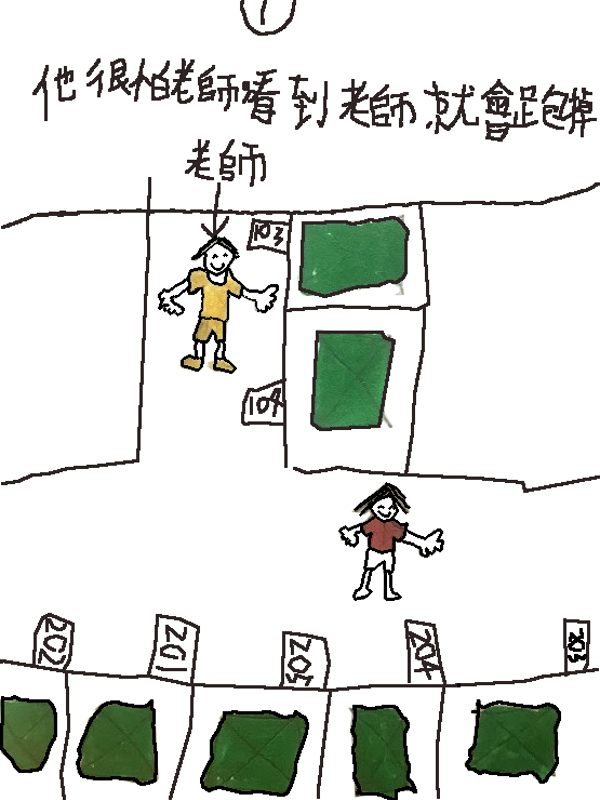 1
他很怕老師看到老師就會跑掉
老師
103
104
202
201
205
204
203